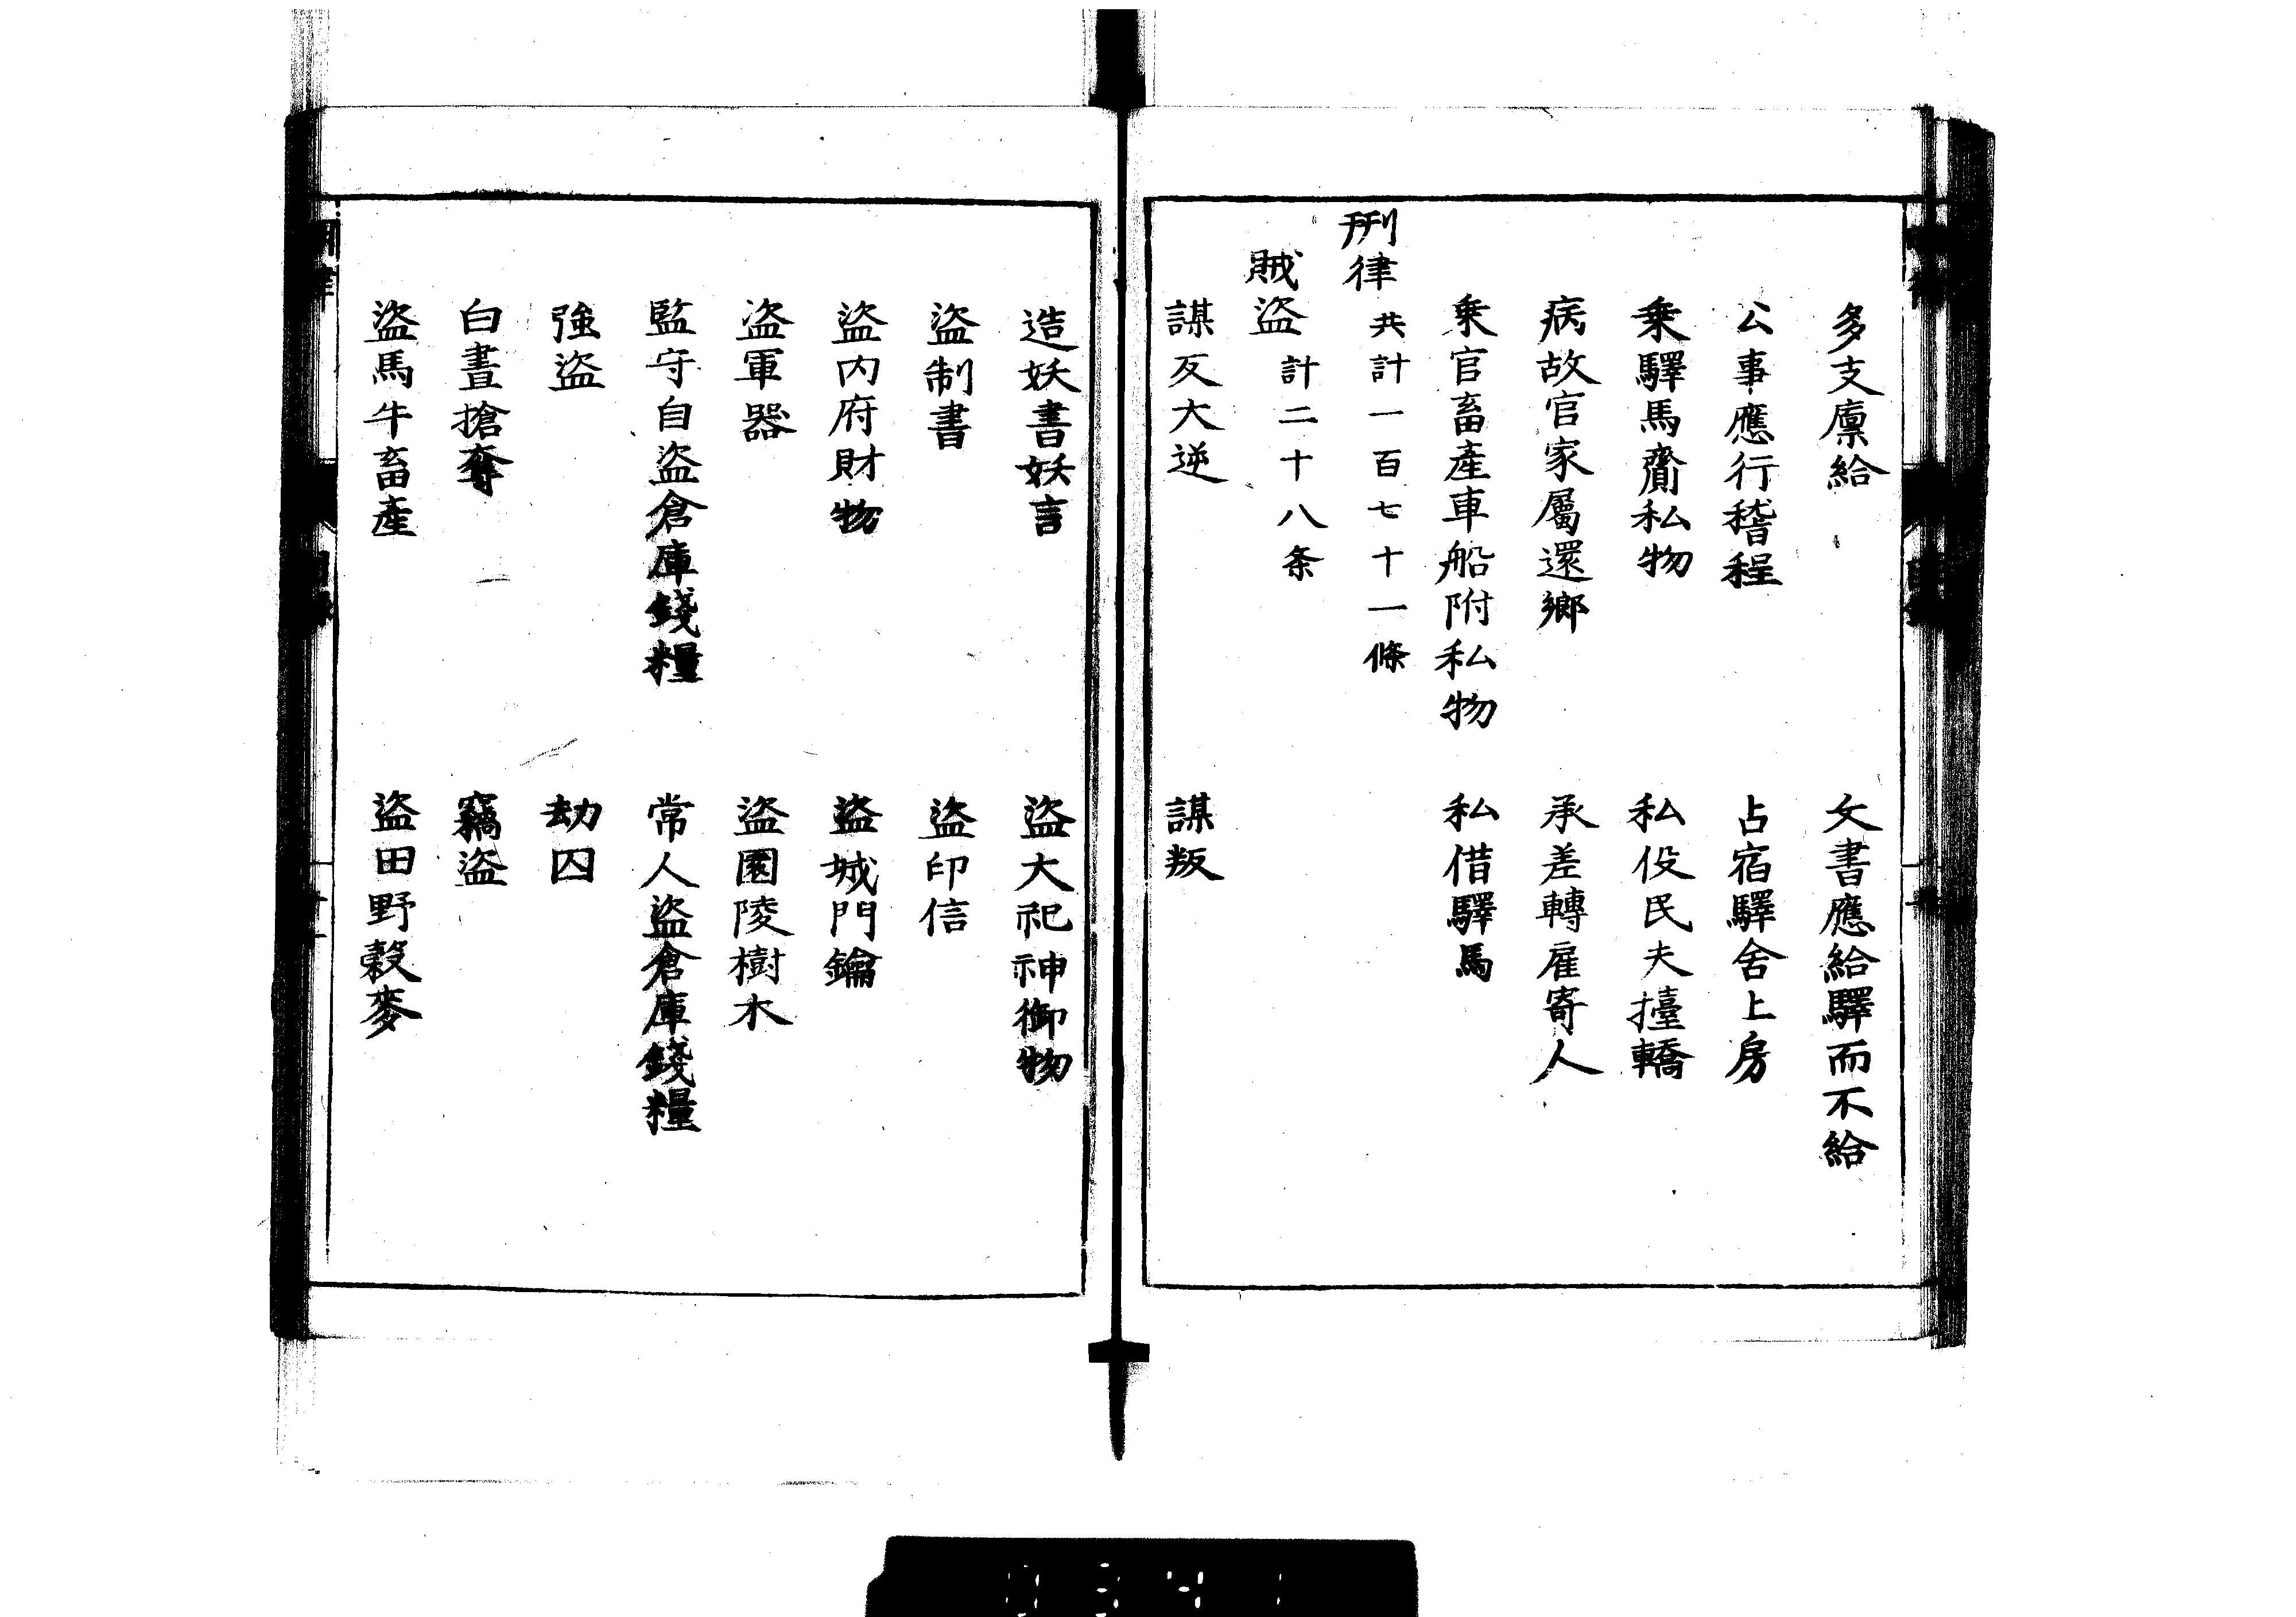 多支廪給　文書應給驛而不給
公事應行稽程　占宿驛舍上房
乗驛馬齎私物　私役民夫擡轎
病故官家屬還鄉　承差轉雇寄人
乗官畜產車船附私物　私借驛馬
刑律 共計一百七十一條
賊盗 計二十八条
謀反大逆　謀叛
造妖書妖言　盗大祀神御物
盗制書　盗印信
盗内府財物　盗城門鑰
盗軍器　盗園陵樹木
監守自盗倉庫錢糧　常人盗倉庫錢糧
強盗　劫囚
白晝搶奪　竊盗
盗馬牛畜產　盗田野穀麥